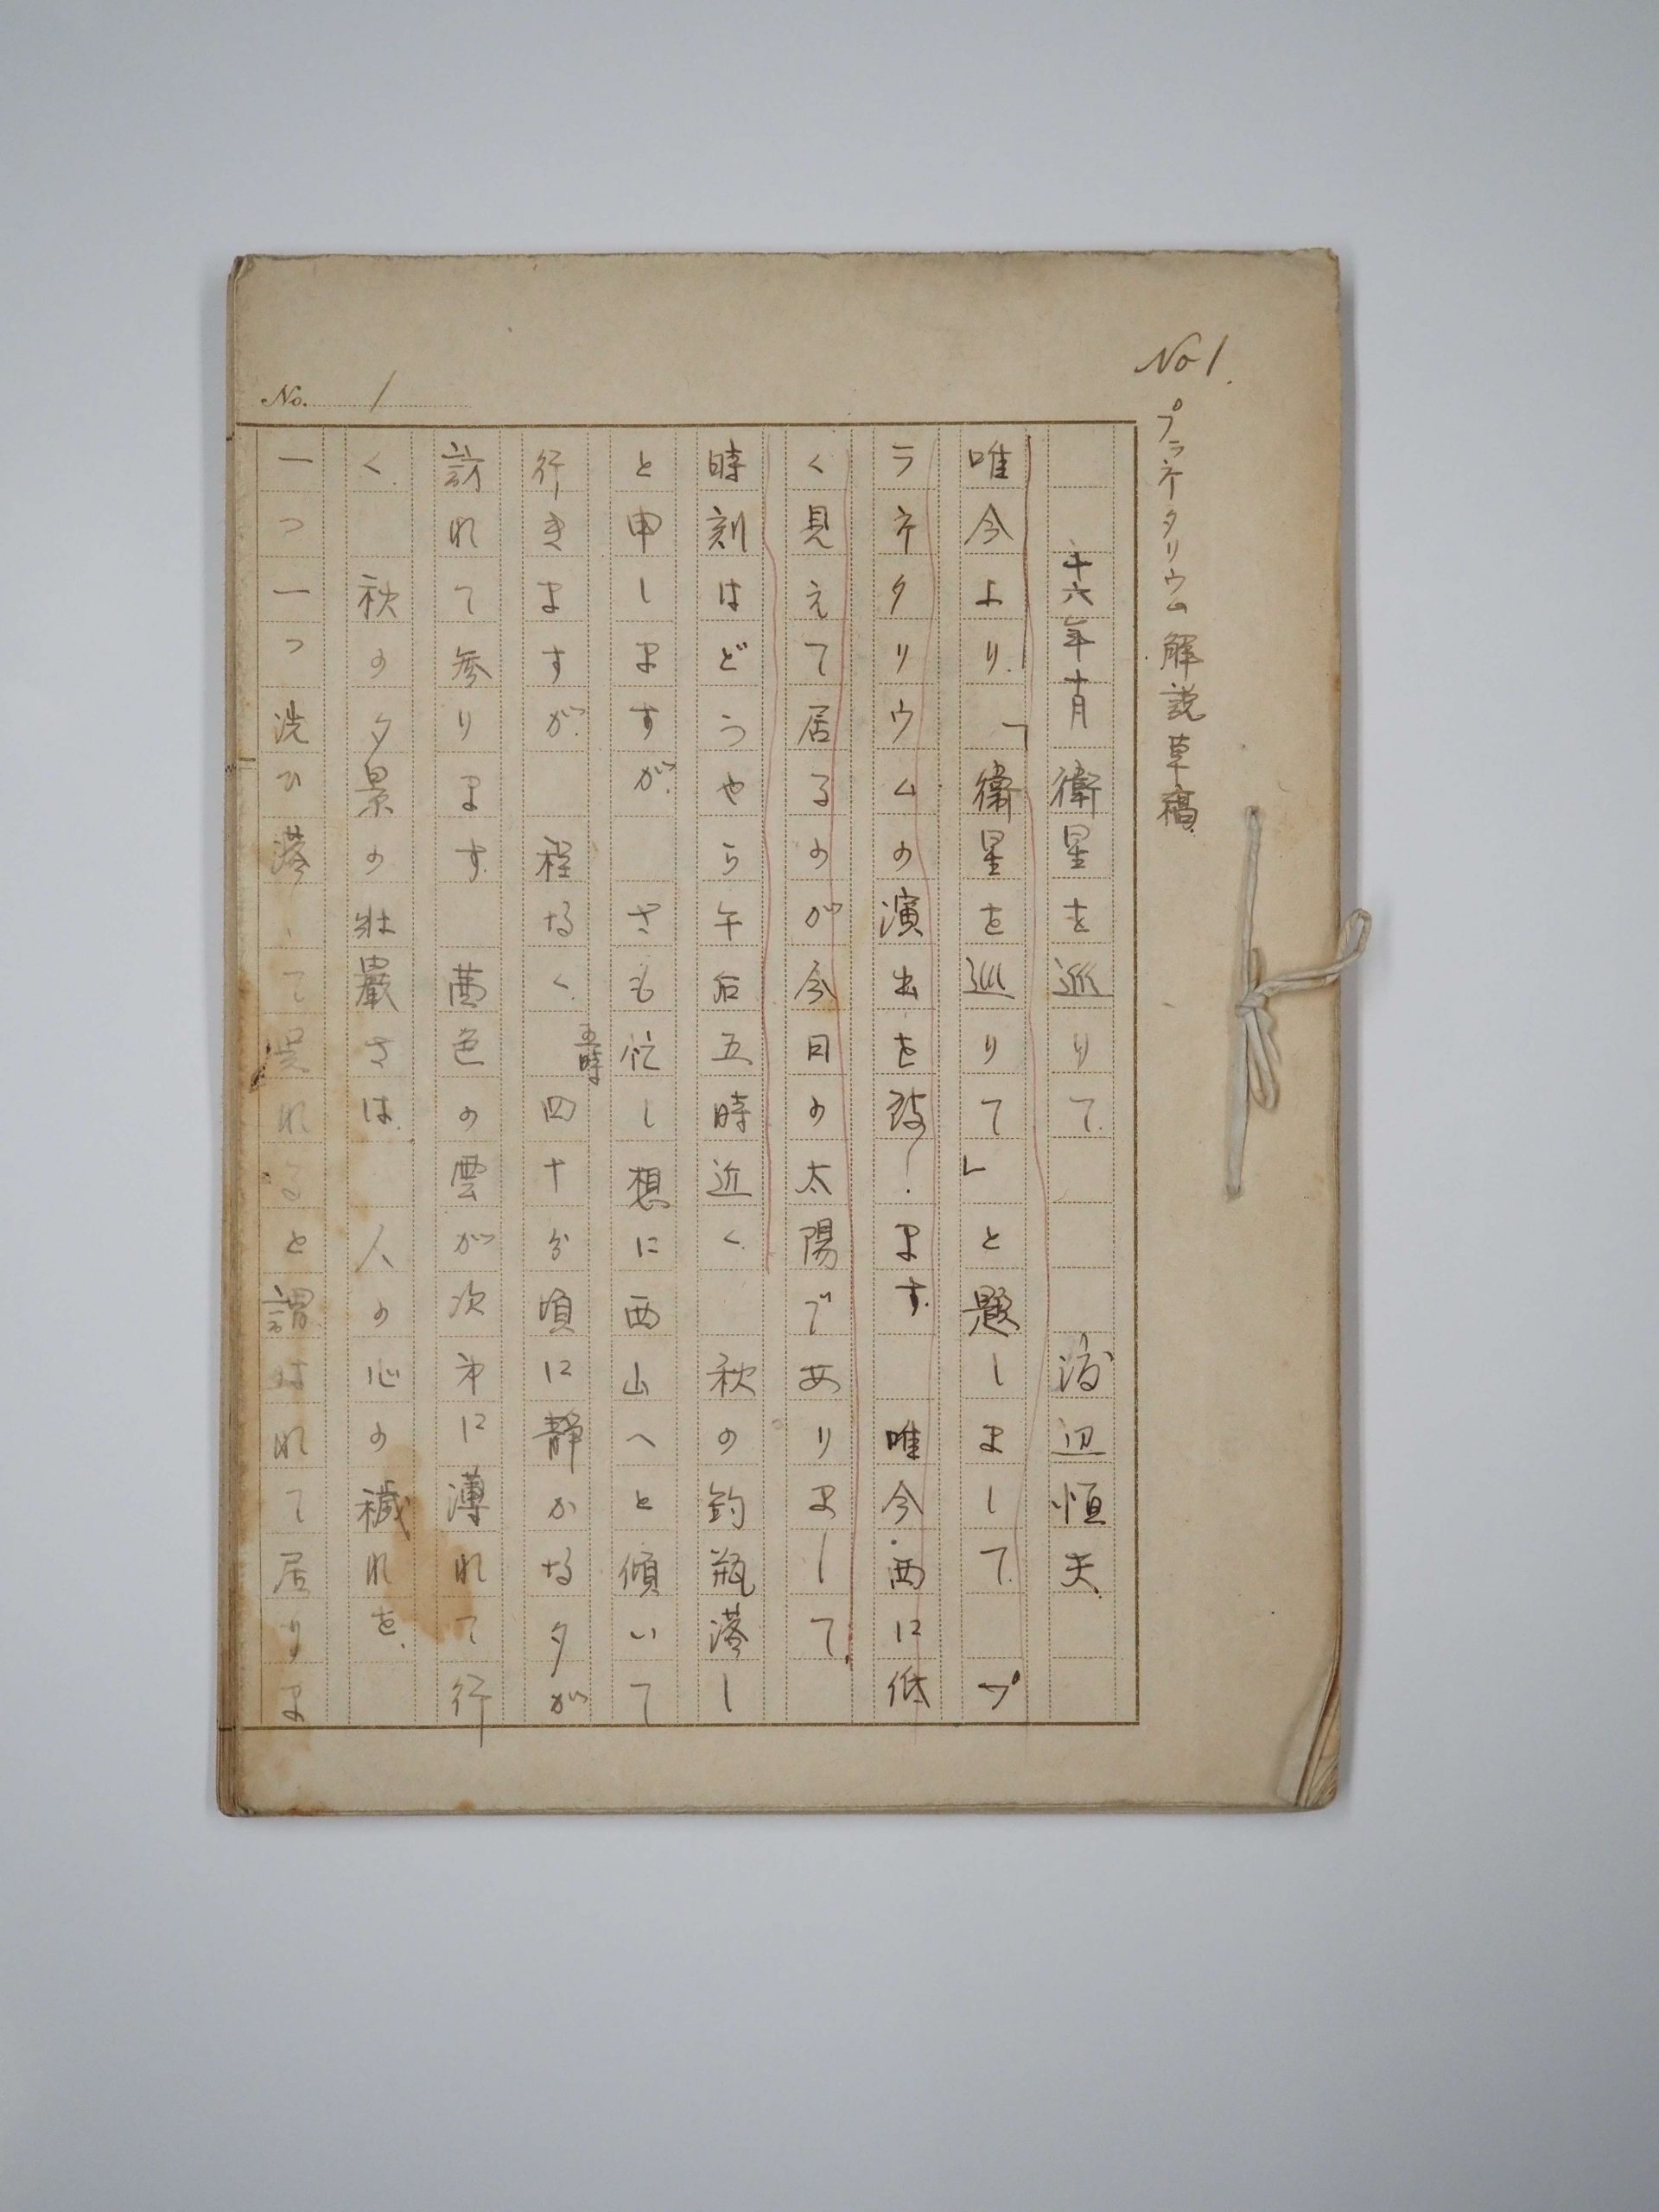 No 1.
プラネータリウム 解説草稿
No. 1
十六年十月 衛星を巡りて 渡辺恒夫
唯今より.「衛星を巡りて」と題しまして プ
ラネタリウムの演出を致します. 唯今西に低
く見えて居るのが今日の太陽でありまして
時刻はどうやら午后五時近く 秋の釣瓶落し
と申しますが. さも忙し想に西山へと傾いて
行きますが. 程なく. 五時四十分頃に静かな夕が
訪れて参ります. 茜色の雲が次第に薄れて行
く. 秋の夕景の壮厳さは. 人の心の穢れを.
一つ一つ洗ひ落して呉れると謂はれて居りま